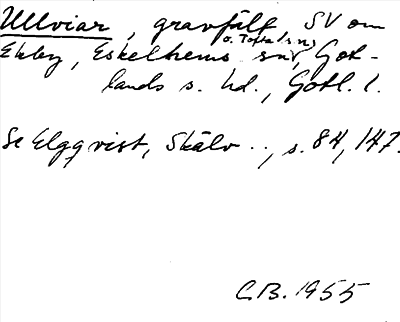 Ullviar, gravfält SV om
Ekeby, Eskelhems o. Tofta snr, Got-
lands s. hd., Gotl. l.
Se Elgqvist, Skälv .., s. 84, 147.
C.B. 1955